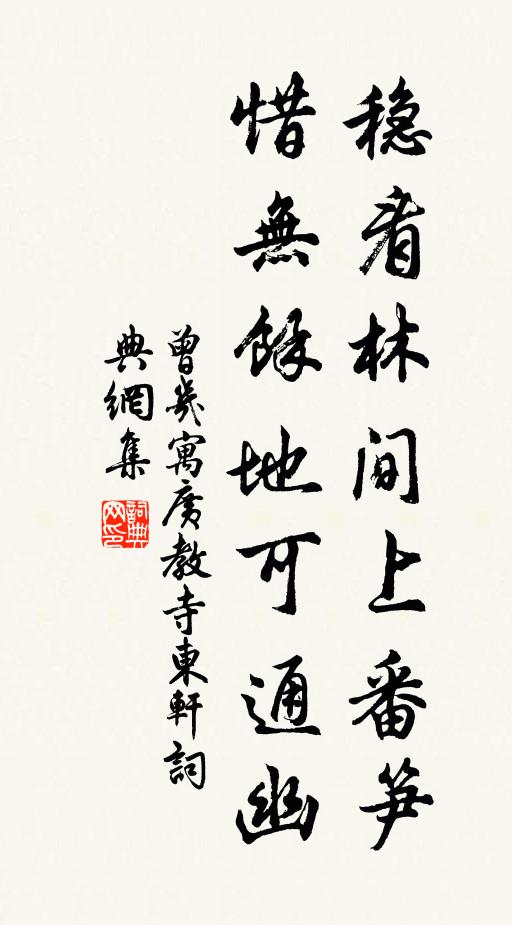 穩看林間上番笋
惜無餘地可通幽
曾幾寓廣教寺東軒詞
典網集
詞典
网印